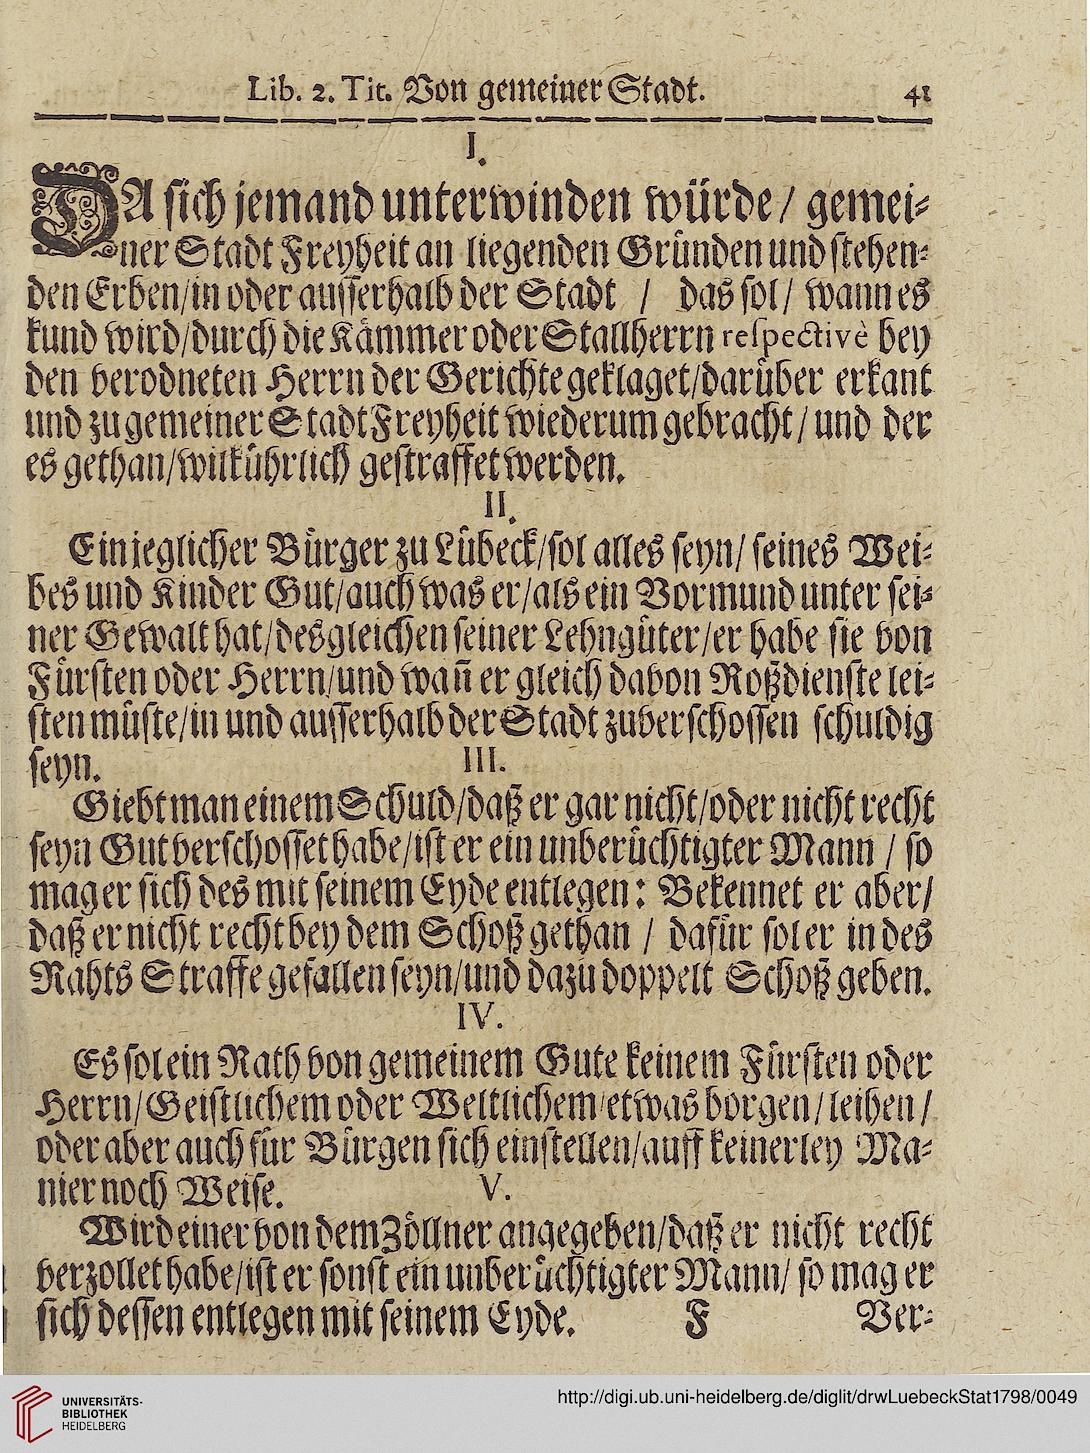 Lib. 2. Tit. Von gemeiner Stadt. 41
I.
DA sich jemand unterwinden würde / gemei-
ner Stadt Freyheit an liegenden Gründen und stehen-
den Erben/in oder ausserhalb der Stadt / das sol/ wann es
kund wird/durch die Kämmer oder Stallherrn respectivè bey
den verodneten Herrn der Gerichte geklaget/darüber erkant
und zu gemeiner Stadt Freyheit wiederum gebracht/ und der
es gethan/wilkührlich gestraffet werden.
II.
Ein jeglicher Bürger zu Lübeck/sol alles seyn/ seines Wei-
bes und Kinder Gut/auch was er/als ein Vormund unter sei-
ner Gewalt hat/desgleichen seiner Lehngüter/er habe sie von
Fürsten oder Herrn/und wañ er gleich davon Roßdienste lei-
sten müste/in und ausserhalb der Stadt zuverschossen schuldig
seyn.
III.
Giebt man einem Schuld/daß er gar nicht/oder nicht recht
seyn Gut verschosset habe/ist er ein unberüchtigter Mann / so
mag er sich des mit seinem Eyde entlegen: Bekennet er aber/
daß er nicht recht bey dem Schoß gethan / dafür sol er in des
Rahts Straffe gefallen seyn/und dazu doppelt Schoß geben.
IV.
Es sol ein Rath von gemeinem Gute keinem Fürsten oder
Herrn/Geistlichem oder Weltlichem/etwas borgen/leihen/
oder aber auch für Bürgen sich einstellen/auff keinerley Ma-
nier noch Weise.
V.
Wird einer von dem Zöllner angegeben/daß er nicht recht
verzollet habe/ist er sonst ein unberüchtigter Mann/ so mag er
sich dessen entlegen mit seinem Eyde.
F Ver-
UNIVERSITÄTS-
BIBLIOTHEK
HEIDELBERG
http://digi.ub.uni-heidelberg.de/diglit/drwLuebeckStat1798/0049